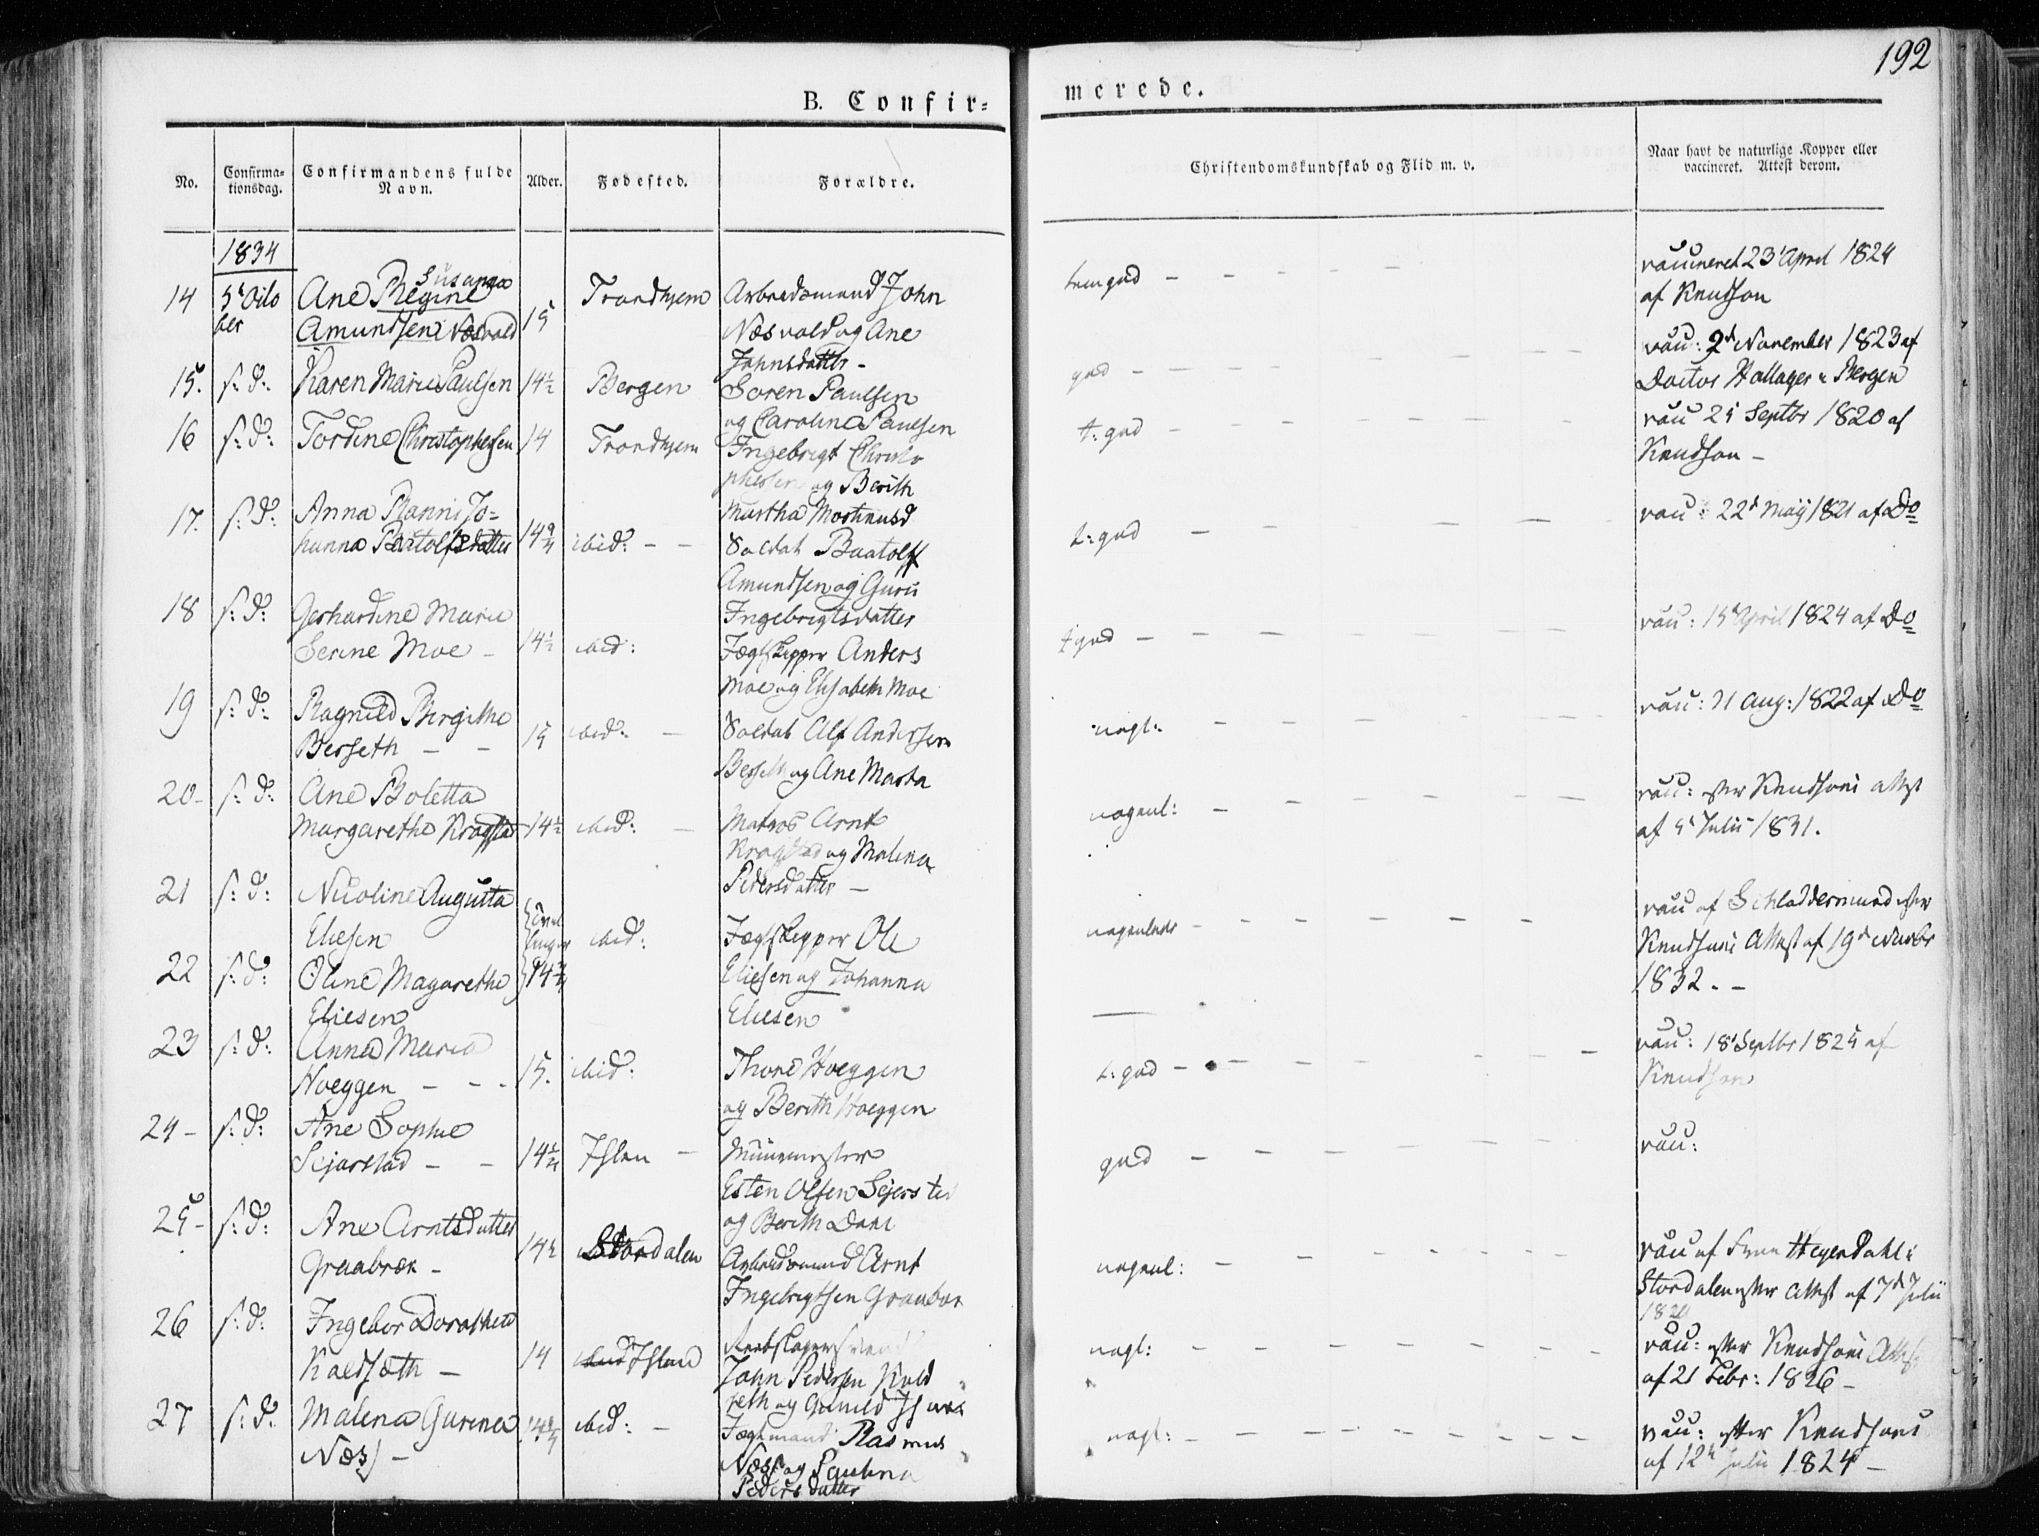 192
B. Confir-
merede.
No.
Confirma-
tionsdag.
Confirmandens fulde
Navn.
Alder.
Fødested.
Forældre.
Christendomskundskab og Flid m. v.
Naar havt de naturlige Kopper eller
vaccineret. Attest derom.
1834
14 5t Octo
ber
Susanna
Ane Regine
Amundsen Næsvold
15
Trondhjem
Arbeidsmand John
Næsvold og Ane
Johnsdatter -
temgod - - - - -
vaccineret 23d April 1824
af Knudson
15. s: d: Karen Marie Paulsen 14½ Bergen
Soren Paulsen
og Carolina Paulsen
god - - - - -
vacc: 2d November 1823 af
Doctor Hallager i Bergen
16 s: d: Tordine Christophersen 14 Trondhjem
Ingebrigt Christo
phersen og Berith
Martha
t: god - - - - - -
vacc 25 Septbr 1820 af
Knudson -
17. s: d: Anna Ranni Jo-
hanna Baatolfsdatter 14¾ ibid: - -
Soldat Baatolf
Amundsen og Guru
Ingebrigtsdatter
t: god - - - - - -
vacc: 22d Maij 1821 af Do
18 s: d: Gerhardine Marie
Serine Moe - 14½ ibid:
Jægtskipper Anders
Moe og Elisabeth Moe
t god - - - - - -
vacc: 15d April 1824 af Do
19 s: d: Ragnild Birgithe
Berseth - - 15 ibid: -
Soldat Alf Andersen
Berseth og Ane Marta
nogl: - - - - - -
vacc: 21 Aug: 1822 af Do
20- s: d: Ane Boletta
Margarethe Kragstad 14½ ibid: -
Matros Arnt
Kragstad og Malena
Pedersdatter -
nogenl: - - - - - -
vacc: efter Knudsons Attest
af 5t Julii 1831.
21 s: d: Nicoline Augusta
Eliesen
Tvil
linger
ibid:
Jægtskipper Ole
Eliesen og Johanna
Eliesen
nogenledes - - - - - -
vacc af Schladdermund efter
Knudsons Attest af 19d Novbr
1832. -
22 s: d: Oline Magarethe
Eliesen
14¾
23 s: d: Anna Maria
Hoeggen - - - 15. ibid:
Thore Hoeggen
og Berith Hoeggen
t: god - - - - - -
vacc: 18d Septbr 1825 af
Knudson
24- s: d: Ane Sophie
Sejerstad - - 14¼ Ihlen -
Esten Olsen Sejersted
og Berith Dahl
god - - - - - -
vacc:
25- s: d: Ane Arntsdatter
Graabræk - 14½ Stordalen
Arbeidsmand Arnt
Ingebrigtsen
nogenl: - - - - - -
vacc af Hegerdahl i
Stordalen efter Attest af 7d Julii
26 s: d: Ingebor Dorothea
Kaldsæth - 14 ibid Ihlen
John Pedersen Kald
seth og Gunild
nogl: - - - - - -
vacc: efter Knudsons Attest
af 21 Febr: 1826 -
27 s: d: Malena Gurina
Næss - ibid: -
Jægtmand Rasmus
Næss og Paulina
Peders datter
nogl: - - - - - -
vacc: efter Knudsons
af 12t Julii 1824 -